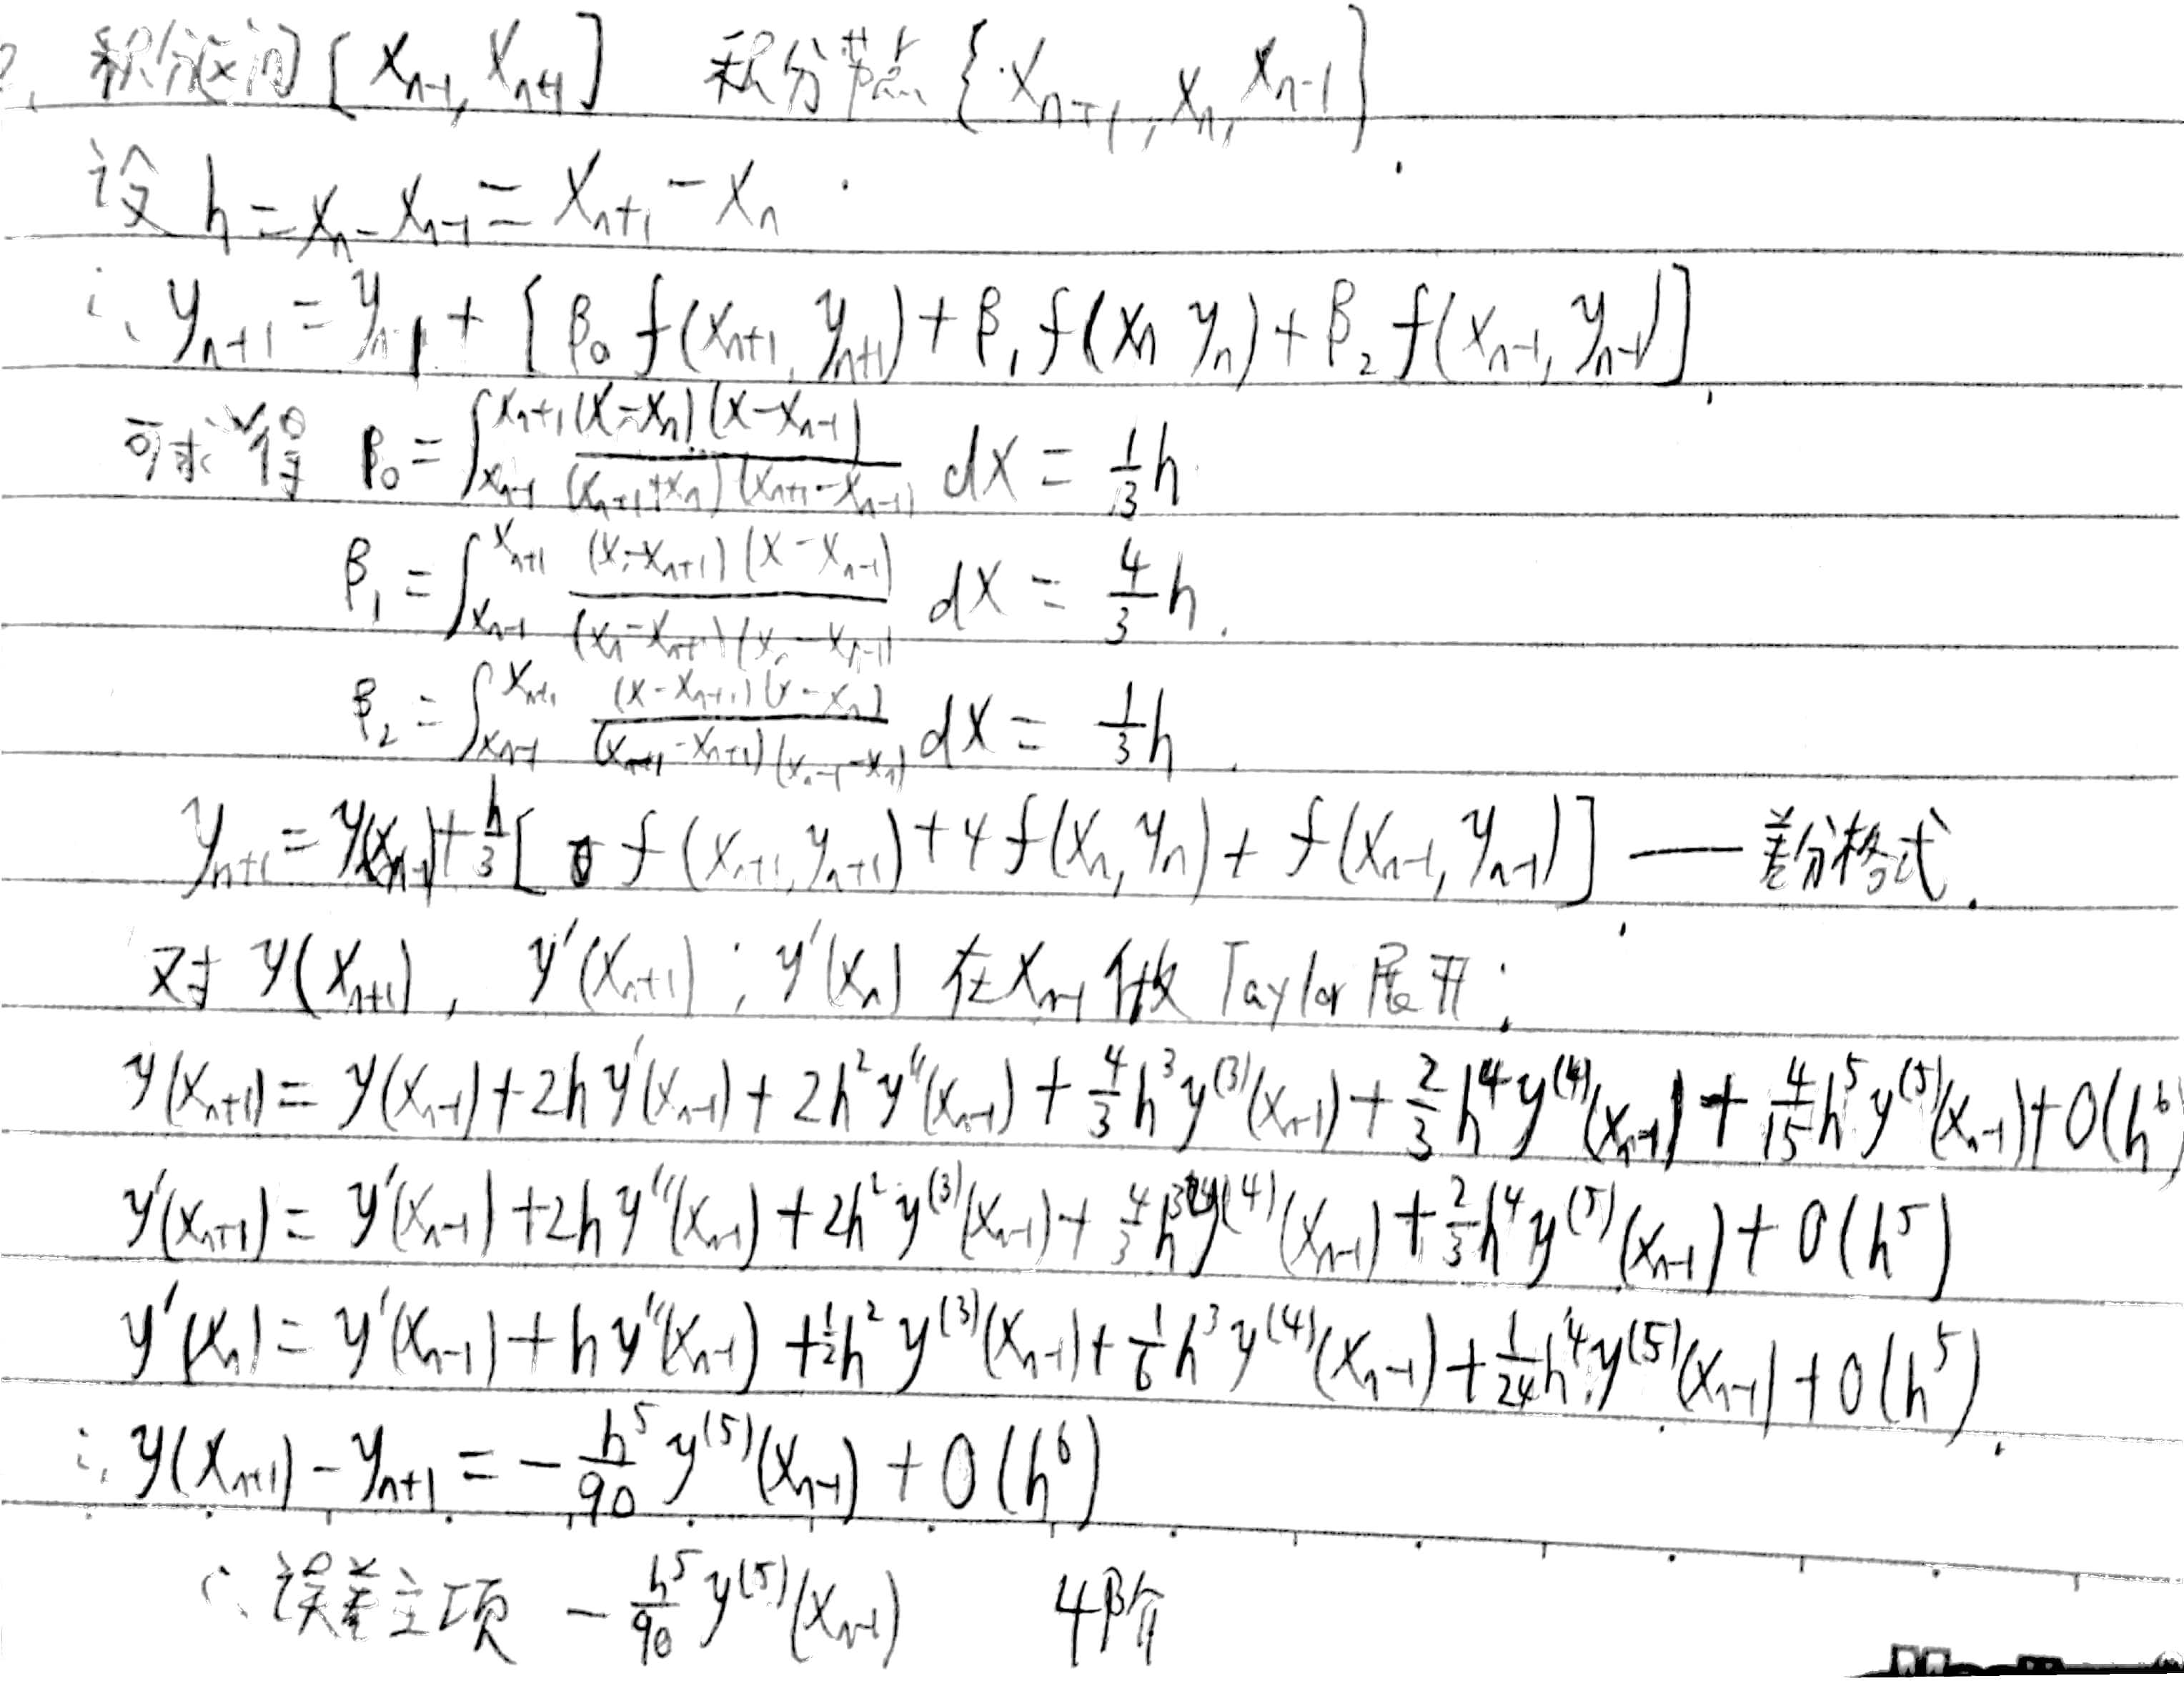 2. 积分区间 [x_{n-1}, x_{n+1}] 积分节点 {x_{n+1}, x_n, x_{n-1}}.
设 h = x_n - x_{n-1} = x_{n+1} - x_n.
∴ y_{n+1} = y_{n-1} + [β_0 f(x_{n+1}, y_{n+1}) + β_1 f(x_n y_n) + β_2 f(x_{n-1}, y_{n-1})].
可求得 β_0 = ∫_{x_{n-1}}^{x_{n+1}} \frac{(x-x_n)(x-x_{n-1})}{(x_{n+1}+x_n)(x_{n+1}-x_{n-1})} dx = \frac{1}{3}h.
β_1 = ∫_{x_{n-1}}^{x_{n+1}} \frac{(x-x_{n+1})(x-x_{n-1})}{(x_n-x_{n+1})(x_n-x_{n-1})} dx = \frac{4}{3}h.
β_2 = ∫_{x_{n-1}}^{x_{n+1}} \frac{(x-x_{n+1})(x-x_n)}{(x_{n-1}-x_{n+1})(x_{n-1}-x_n)} dx = \frac{1}{3}h.
y_{n+1} = y(x_{n-1}) + \frac{h}{3}[f(x_{n+1}, y_{n+1}) + 4f(x_n, y_n) + f(x_{n-1}, y_{n-1})]. — 差分格式.
对 y(x_{n+1}), y'(x_{n+1}); y'(x_n) 在 x_{n-1} 做 Taylor 展开;
y(x_{n+1}) = y(x_{n-1}) + 2hy'(x_{n-1}) + 2h^2y''(x_{n-1}) + \frac{4}{3}h^3y^{(3)}(x_{n-1}) + \frac{2}{3}h^4y^{(4)}(x_{n-1}) + \frac{4}{15}h^5y^{(5)}(x_{n-1}) + O(h^6)
y'(x_{n+1}) = y'(x_{n-1}) + 2hy''(x_{n-1}) + 2h^2y^{(3)}(x_{n-1}) + \frac{4}{3}h^3y^{(4)}(x_{n-1}) + \frac{2}{3}h^4y^{(5)}(x_{n-1}) + O(h^5)
y'(x_n) = y'(x_{n-1}) + hy''(x_{n-1}) + \frac{1}{2}h^2y^{(3)}(x_{n-1}) + \frac{1}{6}h^3y^{(4)}(x_{n-1}) + \frac{1}{24}h^4y^{(5)}(x_{n-1}) + O(h^5).
∴ y(x_{n+1}) - y_{n+1} = -\frac{h^5}{90}y^{(5)}(x_{n-1}) + O(h^6)
∴ 误差主项 -\frac{h^5}{90}y^{(5)}(x_{n-1}) 4阶